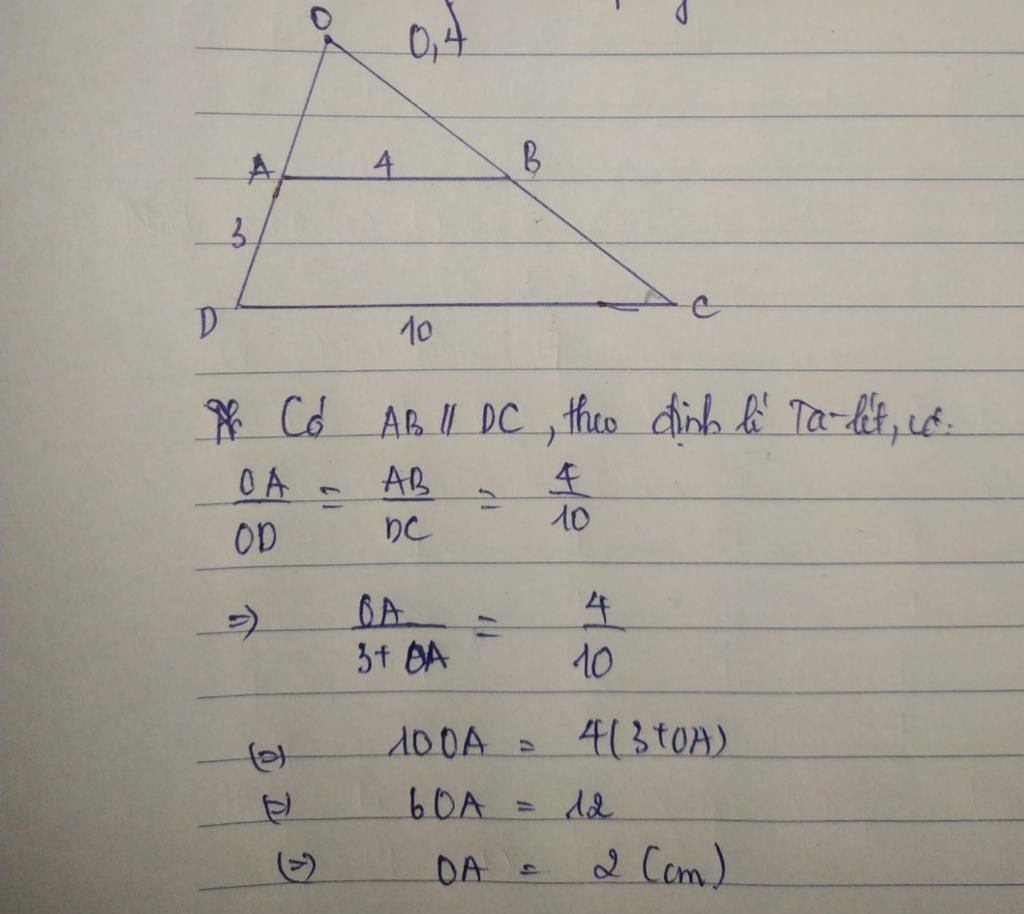 O
0,4
A 4 B
3
D C
10
Có AB // DC, theo định lí Ta-lét, có:
OA/OD = AB/DC = 4/10
=> OA/3+OA = 4/10
(=) 10OA = 4(3+OA)
(=) 6OA = 12
(=) OA = 2 (cm)